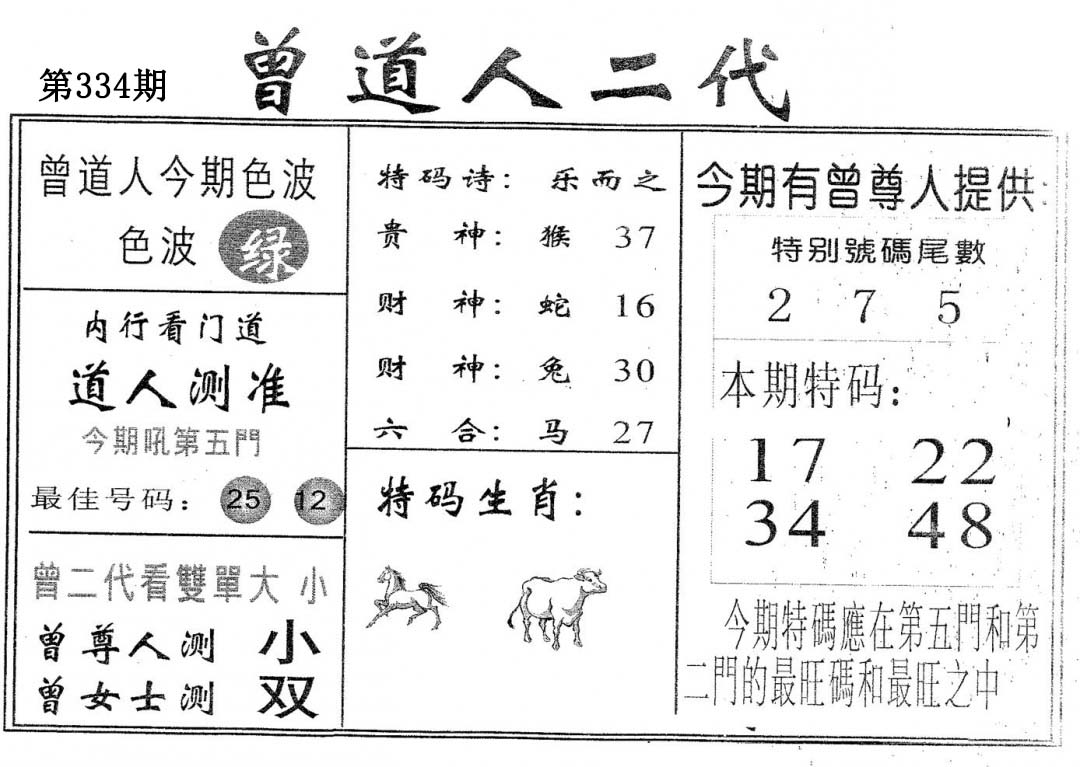 第334期
曾道人二代
曾道人今期色波
色波 绿
内行看门道
道人测准
今期吼第五門
最佳号码： 25 12
曾二代看雙單大 小
曾尊人测 小
曾女士测 双
特码诗： 乐而之
贵 神： 猴 37
财 神： 蛇 16
财 神： 兔 30
六 合： 马 27
特码生肖：
今期有曾尊人提供：
特别號碼尾數
2 7 5
本期特码：
17 22
34 48
今期特碼應在第五門和第
二門的最旺碼和最旺之中